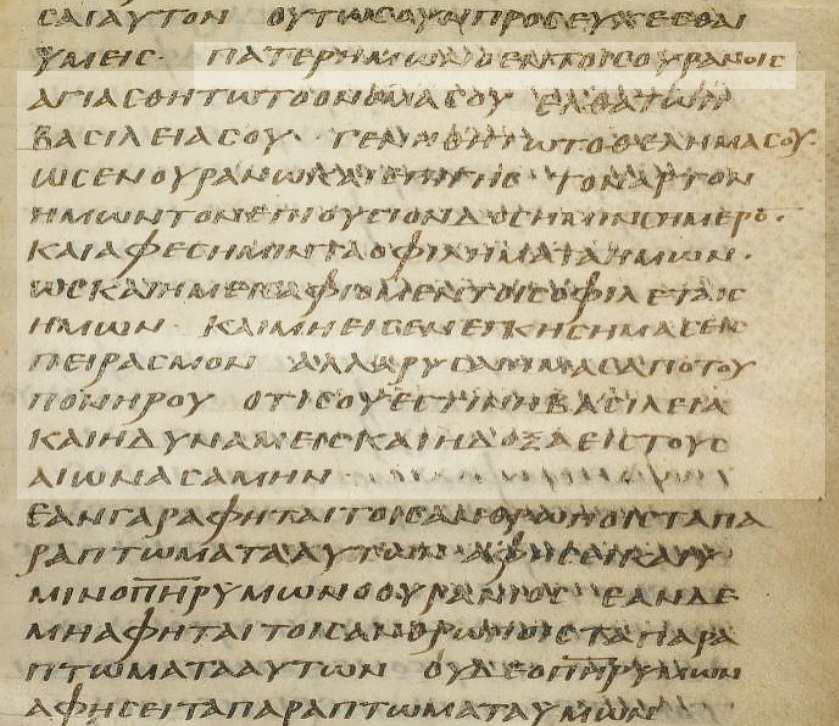 ϹΑΙΑΥΤΟΝ ΟΥΤΩϹΟΥΝΠΡΟϹΕΥΧΕϹΘΑΙ
ΥΜΕΙϹ· ΠΑΤΕΡΗΜΩΝΟΕΝΤΟΙϹΟΥΡΑΝΟΙϹ
ΑΓΙΑϹΘΗΤΩΤΟΟΝΟΜΑϹΟΥ ΕΛΘΑΤΩΗ
ΒΑϹΙΛΕΙΑϹΟΥ· ΓΕΝΗΘΗΤΩΤΟΘΕΛΗΜΑϹΟΥ·
ΩϹΕΝΟΥΡΑΝΩΚΑΙΕΠΙΓΗϹ ΤΟΝΑΡΤΟΝ
ΗΜΩΝΤΟΝΕΠΙΟΥϹΙΟΝΔΟϹΗΜΙΝϹΗΜΕΡΟ·
ΚΑΙΑΦΕϹΗΜΙΝΤΑΟΦΙΛΗΜΑΤΑΗΜΩΝ·
ΩϹΚΑΙΗΜΕΙϹΑΦΙΟΜΕΝΤΟΙϹΟΦΙΛΕΤΑΙϹ
ΗΜΩΝ ΚΑΙΜΗΕΙϹΕΝΕΓΚΗϹΗΜΑϹΕΙϹ
ΠΕΙΡΑϹΜΟΝ ΑΛΛΑΡΥϹΑΙΗΜΑϹΑΠΟΤΟΥ
ΠΟΝΗΡΟΥ ΟΤΙϹΟΥΕϹΤΙΝΗΒΑϹΙΛΕΙΑ
ΚΑΙΗΔΥΝΑΜΕΙϹΚΑΙΗΔΟΞΑΕΙϹΤΟΥϹ
ΑΙΩΝΑϹΑΜΗΝ
ΕΑΝΓΑΡΑΦΗΤΑΙΤΟΙϹΑΝΘΡΩΠΟΙϹΤΑΠΑ
ΡΑΠΤΩΜΑΤΑΑΥΤΩΝ ΑΦΗϹΕΙΚΑΙΥ
ΜΙΝΟΠΗΡΥΜΩΝΟΟΥΡΑΝΙΟϹ ΕΑΝΔΕ
ΜΗΑΦΗΤΑΙΤΟΙϹΑΝΘΡΩΠΟΙϹΤΑΠΑΡΑ
ΠΤΩΜΑΤΑΑΥΤΩΝ ΟΥΔΕΟΠΗΡΥΜΩΝ
ΑΦΗϹΕΙΤΑΠΑΡΑΠΤΩΜΑΤΑΥΜΩΝ